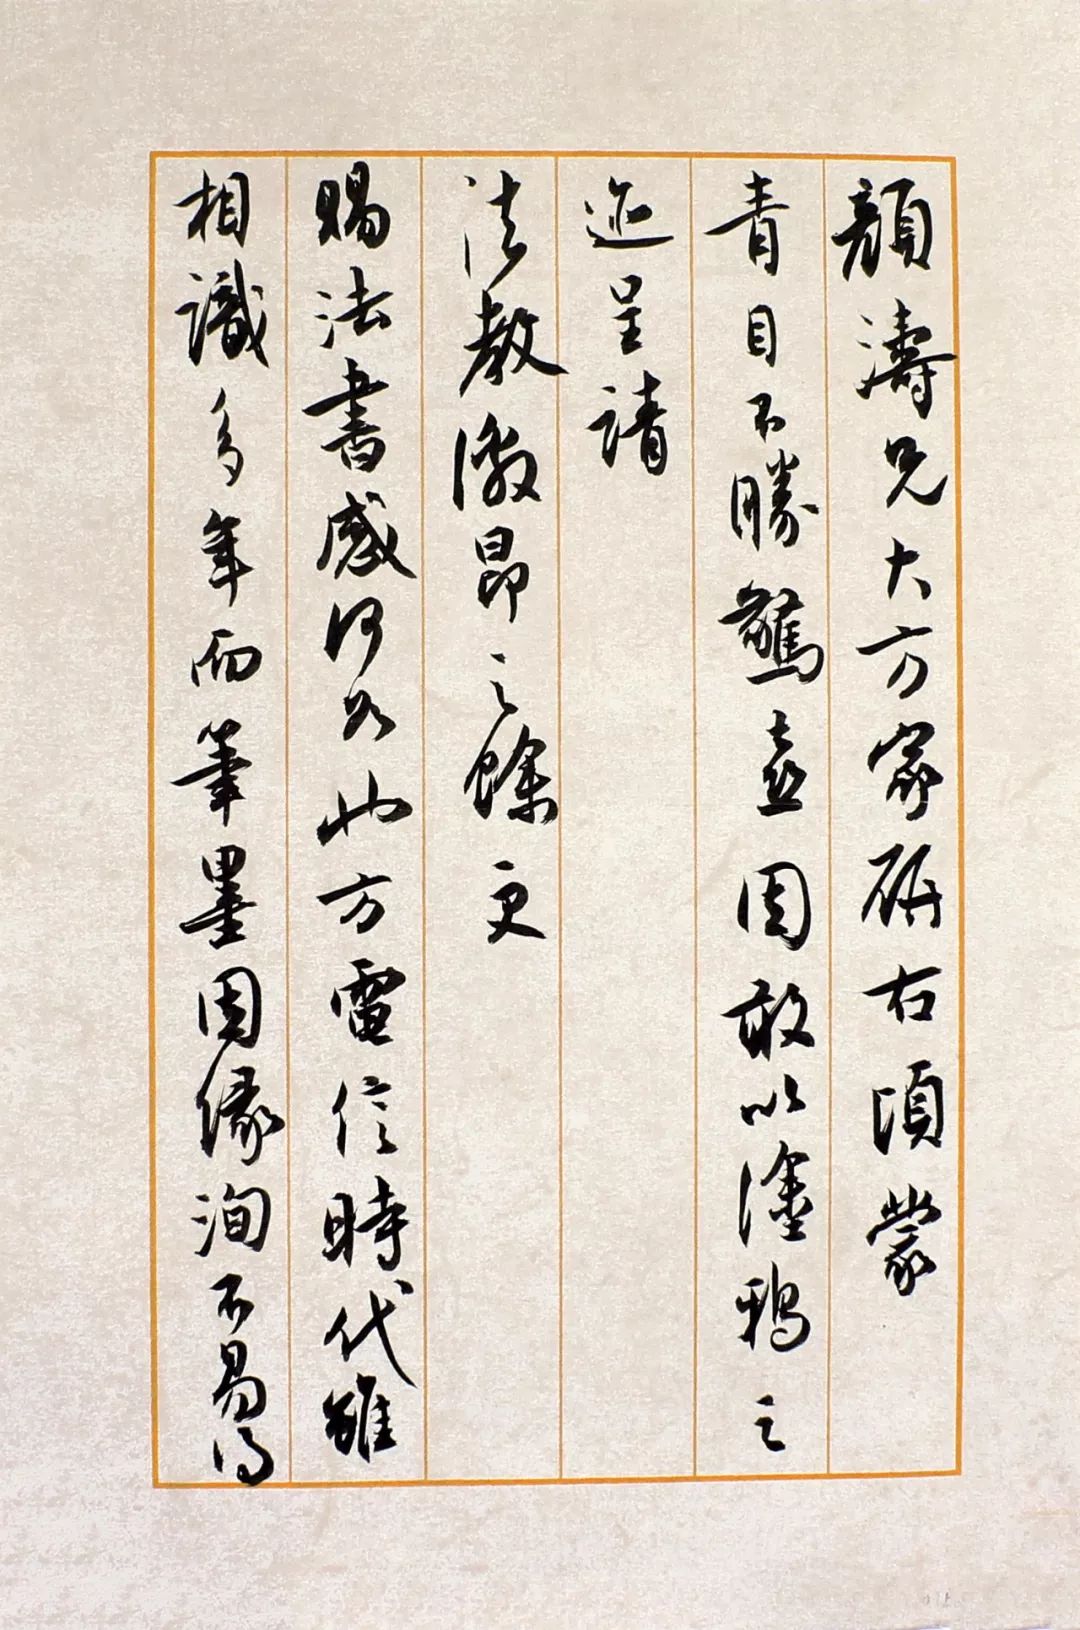 顏濤兄大方家研右頃蒙
青目不勝驚喜因敢以塗鴉之
迹呈請
法教激昂之餘更
賜法書感何如也方電信時代雖
相識多年而筆墨因緣洵不易得